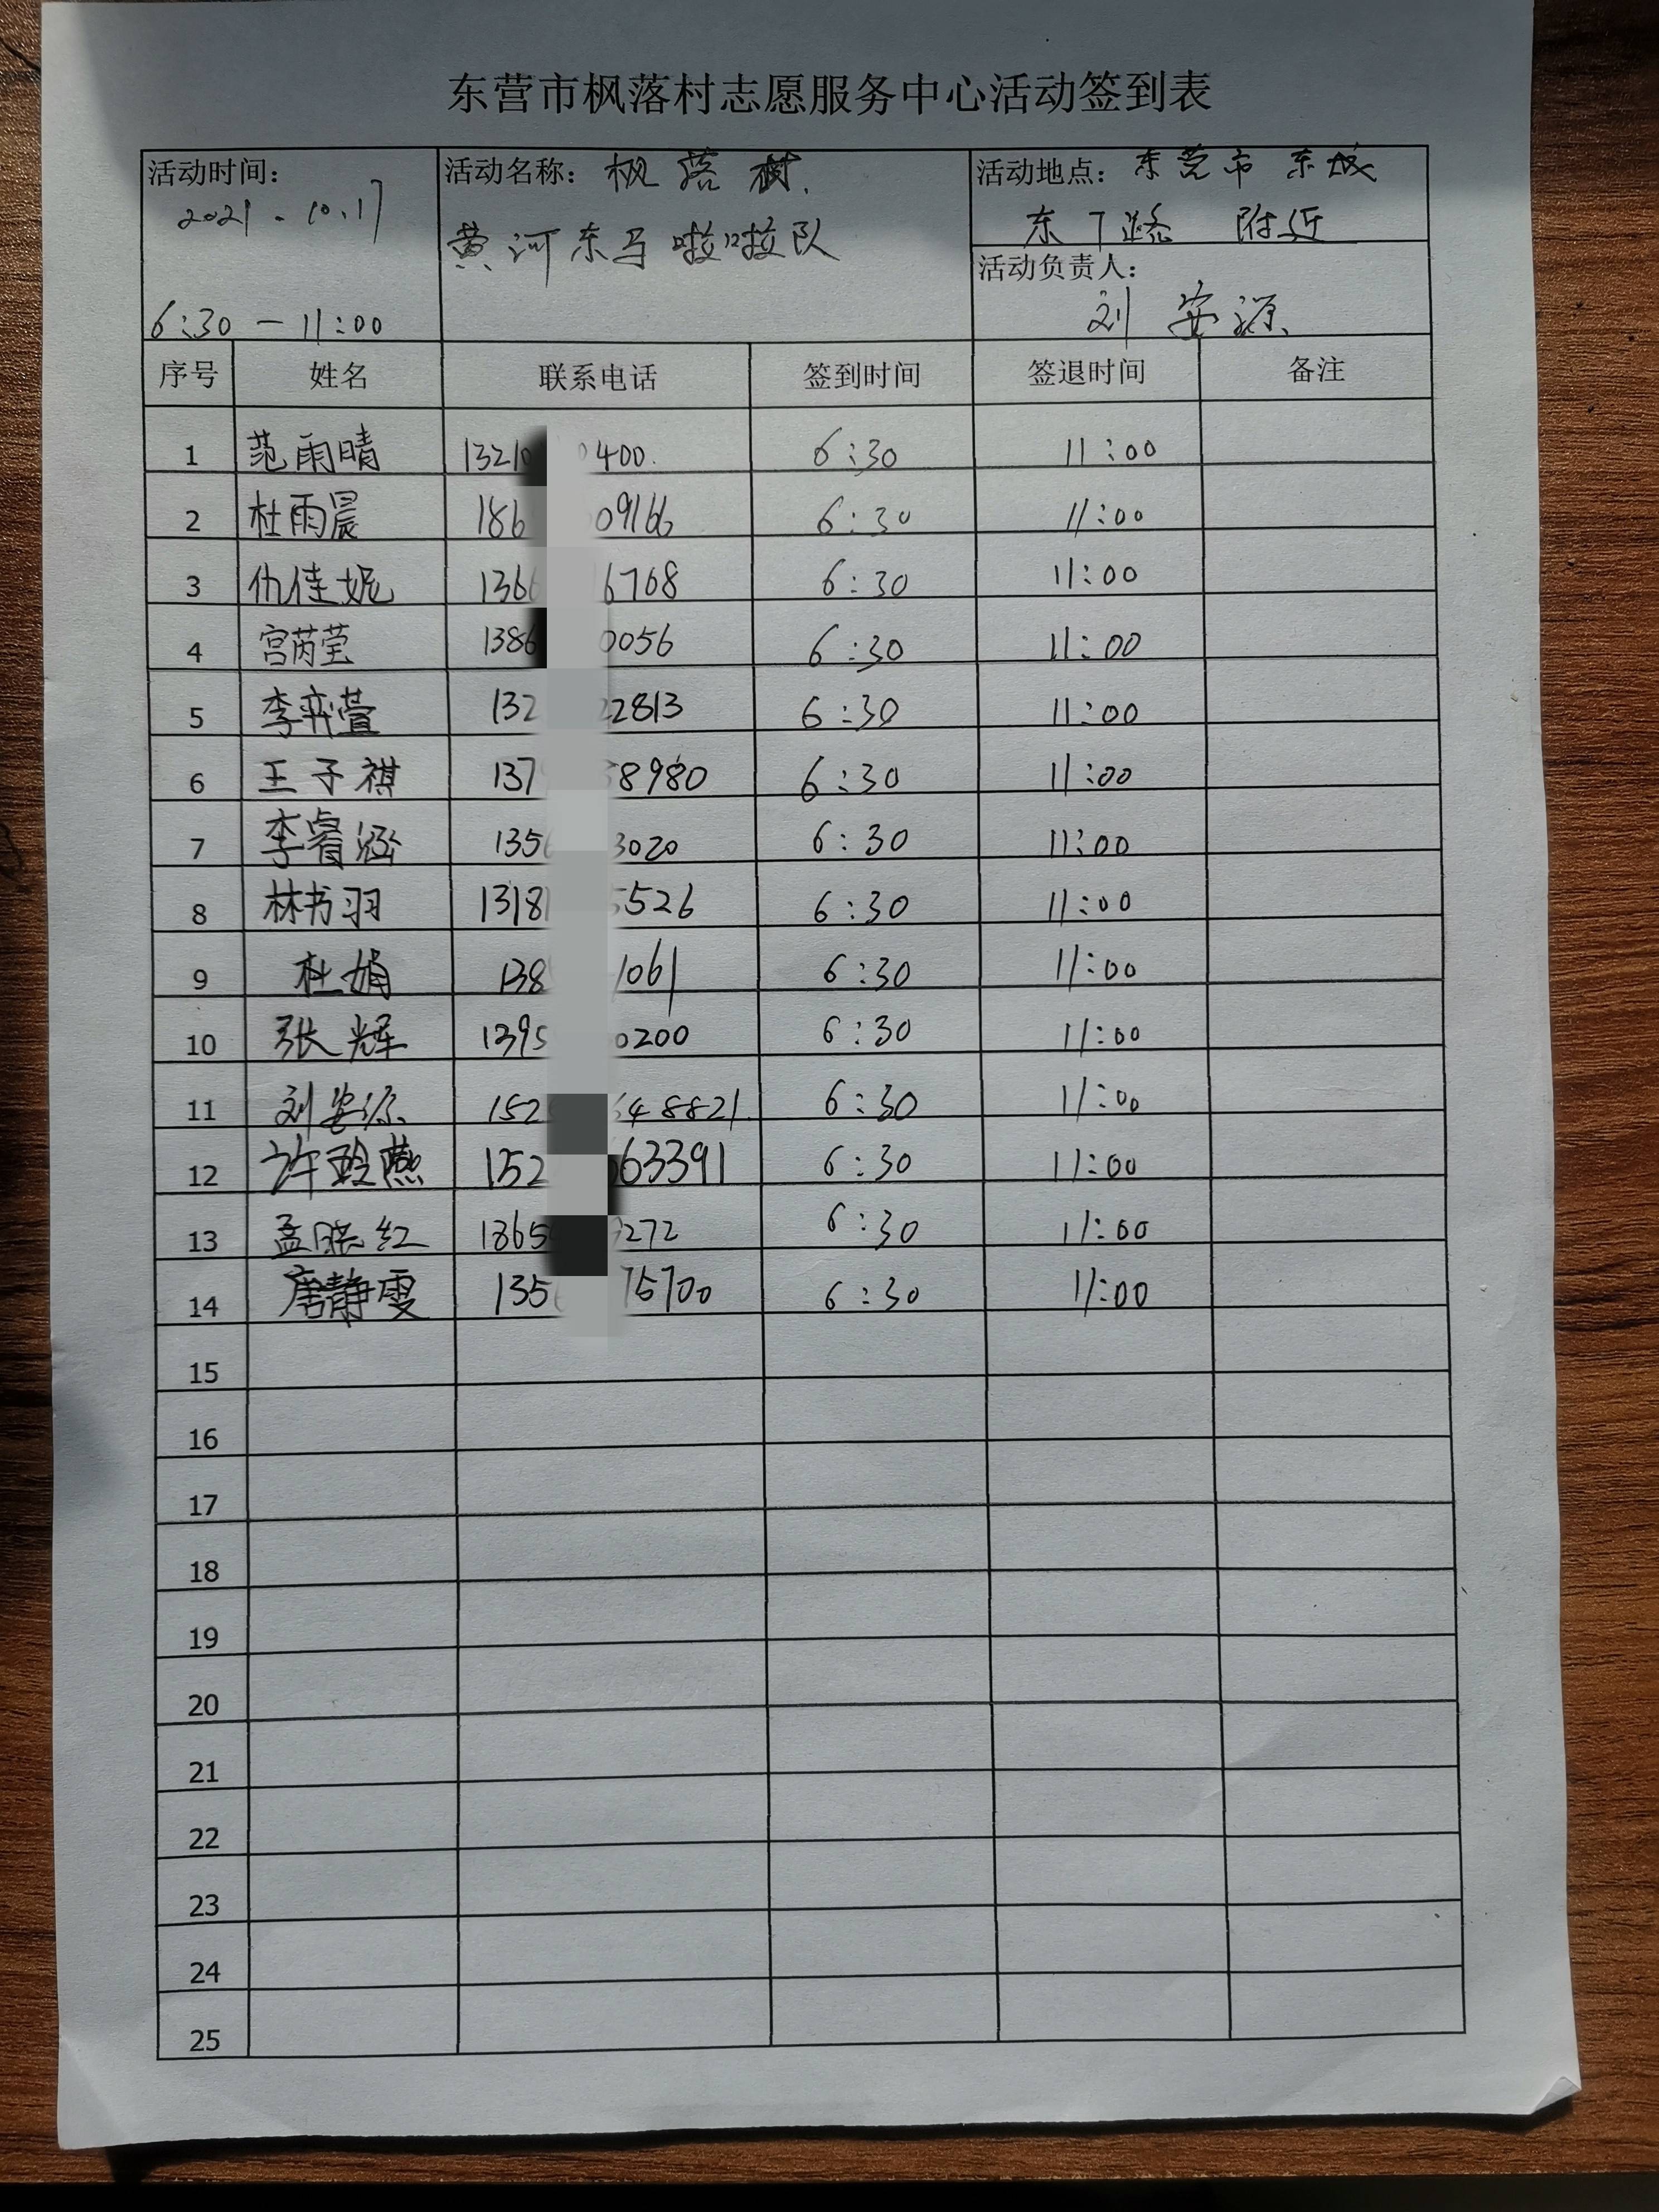 东营市枫落村志愿服务中心活动签到表
活动时间： 活动名称：枫落树. 活动地点：东莞市 东城
2021.10.17 黄河东马啦啦队 东丁路 附近
活动负责人：
6:30—11:00 刘安源
序号 姓名 联系电话 签到时间 签退时间 备注
1 范雨晴 1321 400. 6:30 11:00
2 杜雨晨 186 09166 6:30 11:00
3 仇佳妮 136 6768 6:30 11:00
4 宫芮莹 1386 0056 6:30 11:00
5 李弈萱 132 22813 6:30 11:00
6 王子祺 137 8980 6:30 11:00
7 李睿涵 135 3020 6:30 11:00
8 林书羽 1318 5526 6:30 11:00
9 杜娟 138 1061 6:30 11:00
10 张辉 1395 0200 6:30 11:00
11 刘安源 152 48821. 6:30 11:00
12 许玲燕 152 63391 6:30 11:00
13 孟晓红 1865 272 6:30 11:00
14 唐静雯 135 75700 6:30 11:00
15
16
17
18
19
20
21
22
23
24
25